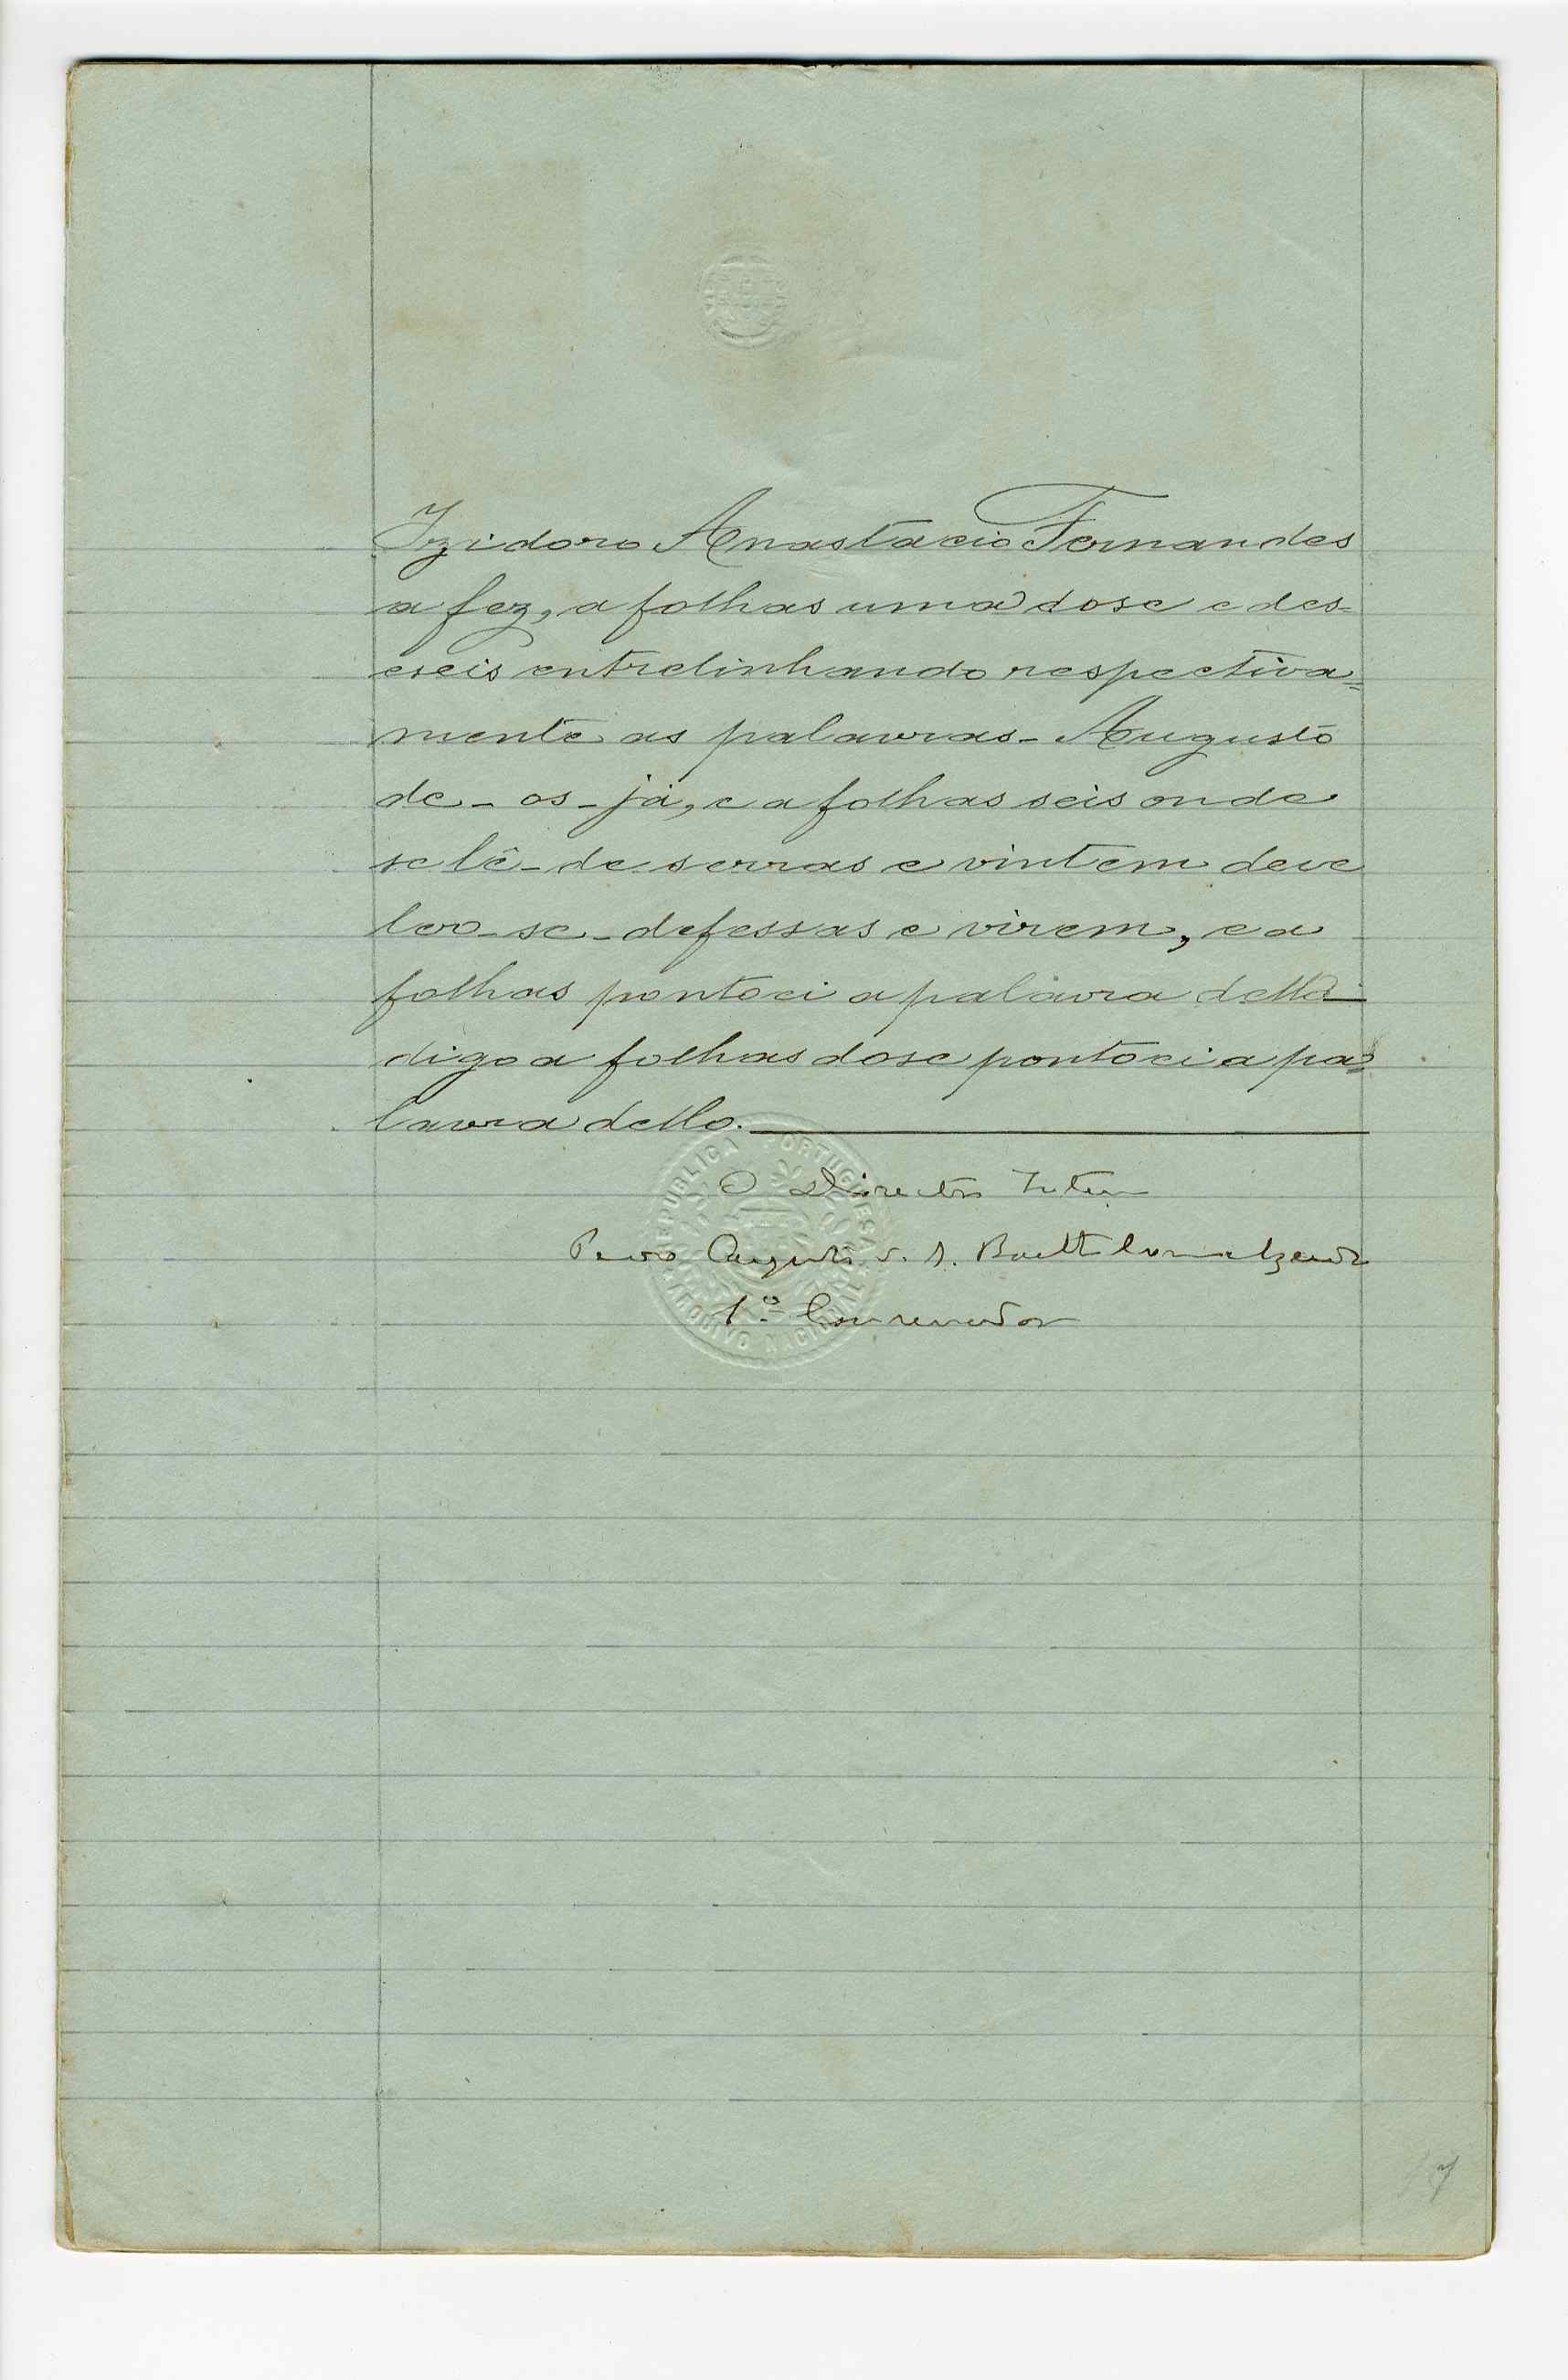 Izidoro Anastacio Fernandes
a fez, a folhas uma dose e des=
eseis entrelinhando respectiva=
mente as palavras - Augusto
de - os - já, e a folhas seis onde
se lê - de serras e vintem deve
ler-se - defessas e virem, e a
folhas pontoei a palavra della
digo a folhas dose pontoei a pa=
lavra dello.
O Director Interº
Pedro Augusto de S. Bartholomeu
1º Conservador
REPUBLICA PORTUGUESA
ARQUIVO NACIONAL
17